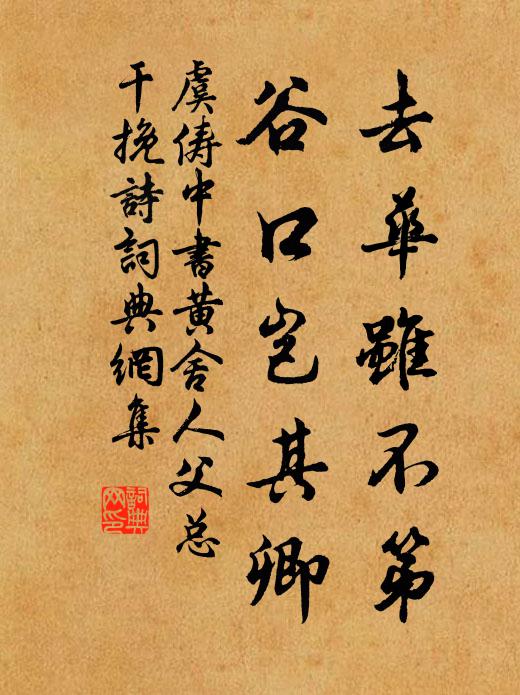 去華雖不第
谷口豈其卿
虞儔中書黄舍人父总
干挽詩詞典網集
詞典
网印